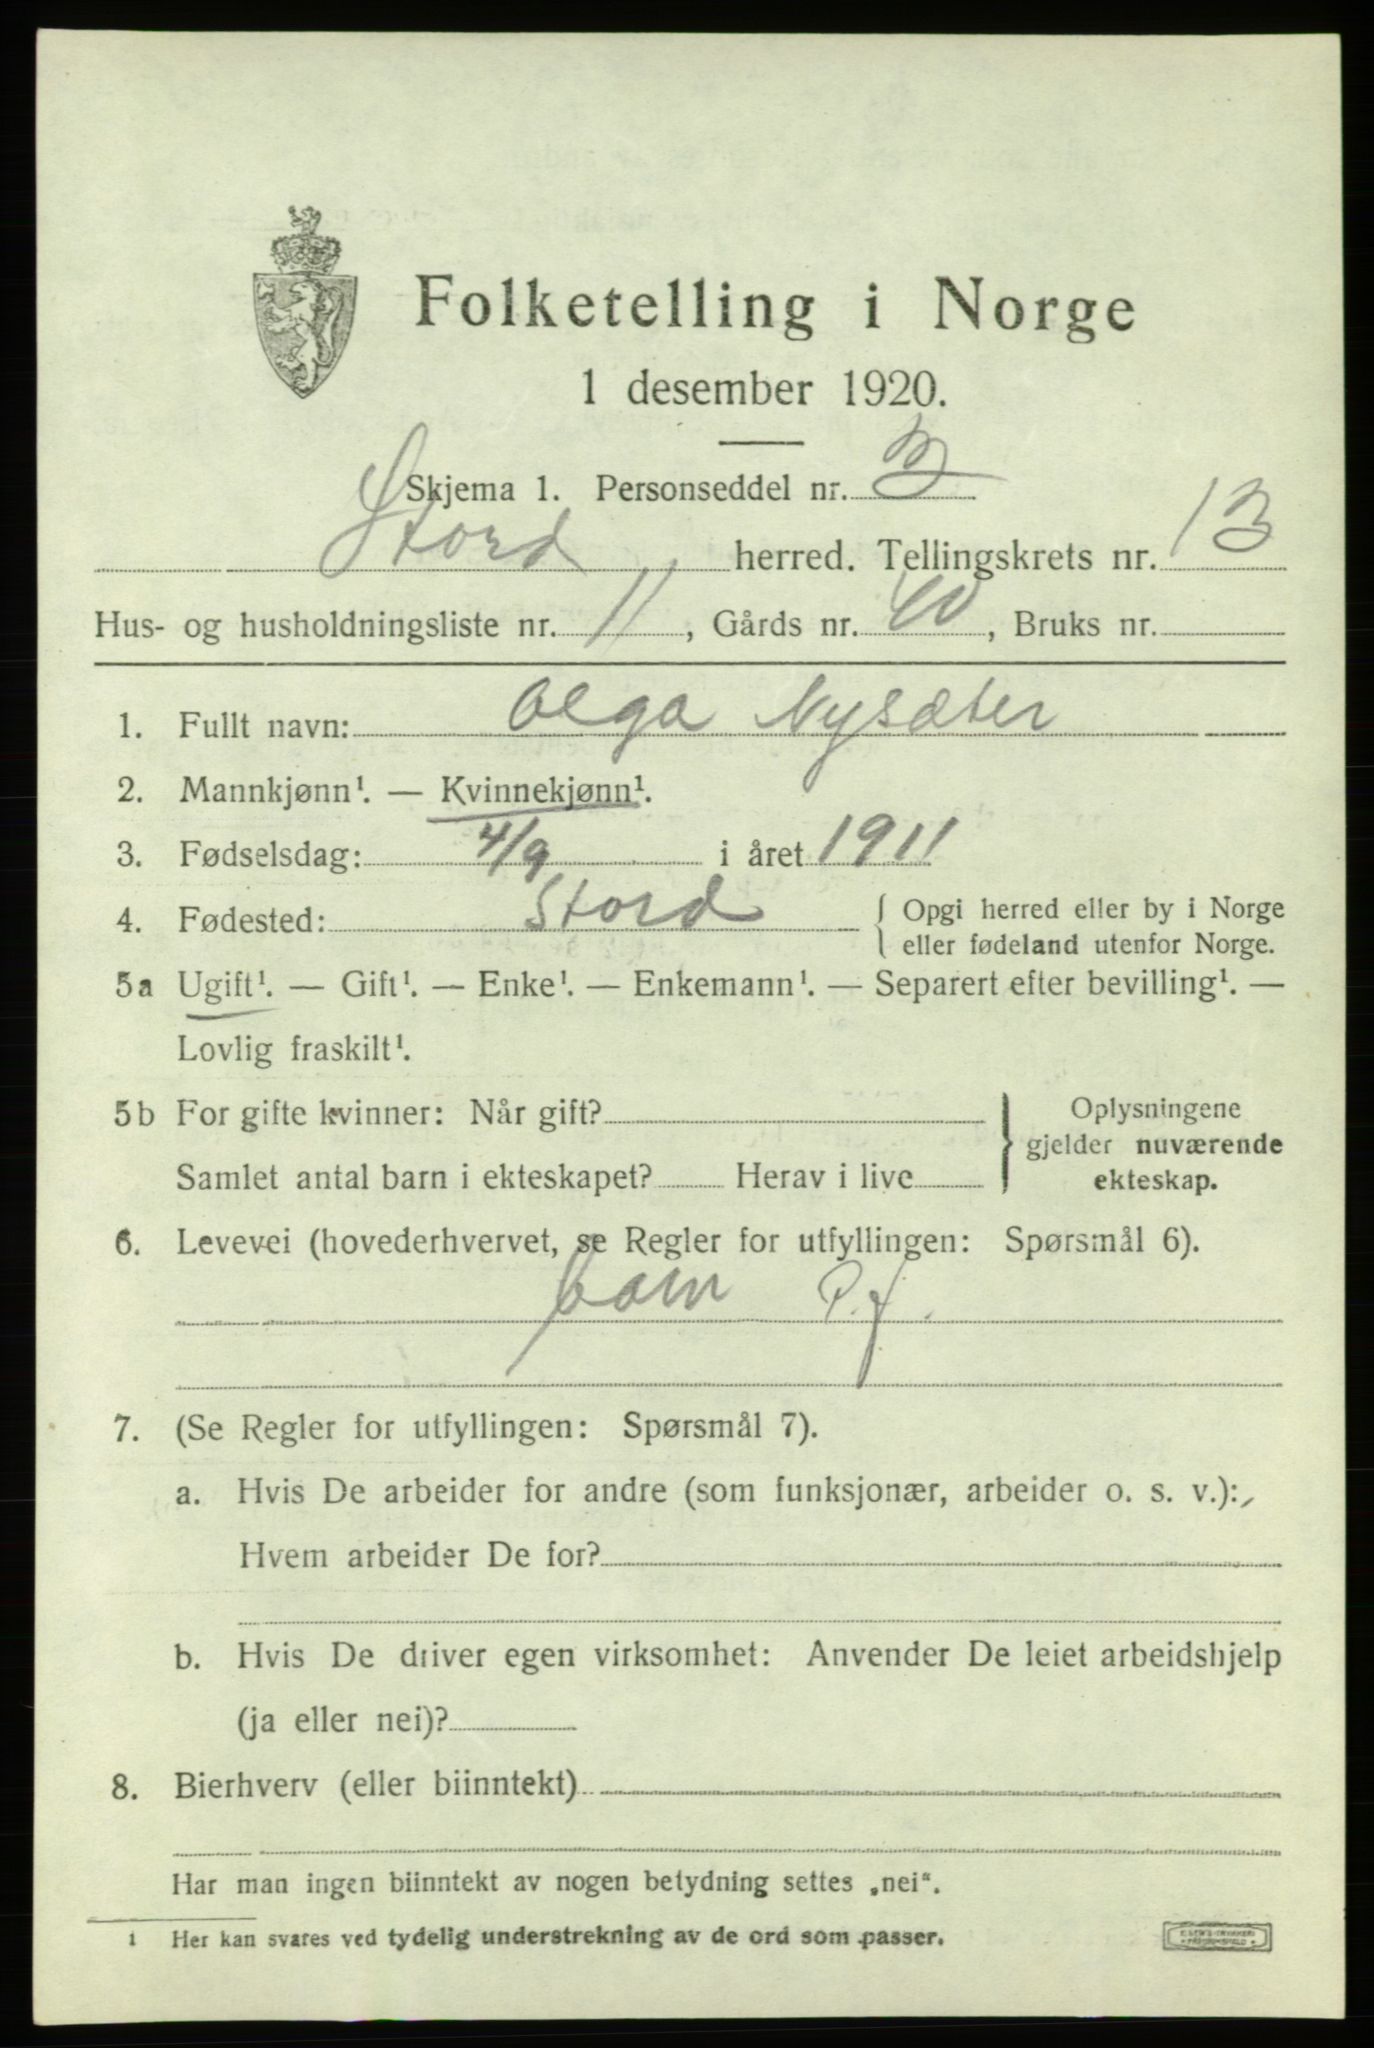 Folketelling i Norge
1 desember 1920.
Skjema 1. Personseddel nr. 3
Stord herred. Tellingskrets nr. 13
Hus- og husholdningsliste nr. 11, Gårds nr. 40, Bruks nr.
1. Fullt navn: Olga Nysæter
2. Mannkjønn¹. — Kvinnekjønn¹.
3. Fødselsdag: 4/9 i året 1911
4. Fødested: Stord { Opgi herred eller by i Norge
eller fødeland utenfor Norge.
5a Ugift¹. — Gift¹. — Enke¹. — Enkemann¹. — Separert efter bevilling¹. —
Lovlig fraskilt¹.
5b For gifte kvinner: Når gift?
Samlet antal barn i ekteskapet? Herav i live
} Oplysningene
gjelder nuværende
ekteskap.
6. Levevei (hovederhvervet, se Regler for utfyllingen: Spørsmål 6).
barn P.f.
7. (Se Regler for utfyllingen: Spørsmål 7).
a. Hvis De arbeider for andre (som funksjonær, arbeider o. s. v.):
Hvem arbeider De for?
b. Hvis De driver egen virksomhet: Anvender De leiet arbeidshjelp
(ja eller nei)?
8. Bierhverv (eller biinntekt)
Har man ingen biinntekt av nogen betydning settes „nei“.
1 Her kan svares ved tydelig understrekning av de ord som passer.